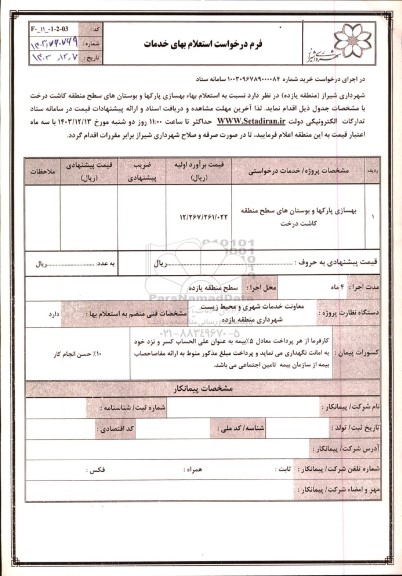 کد: F-_11_-1-2-03
شماره:
تاریخ:
فرم درخواست استعلام بهای خدمات
شهرداری شیراز
در اجرای درخواست خرید شماره ۱۰۰۳۰۹۶۷۸۹۰۰۰۰۸۴ سامانه ستاد
شهرداری شیراز (منطقه یازده) در نظر دارد نسبت به استعلام بهاء بهسازی پارکها و بوستان های سطح منطقه کاشت درخت
با مشخصات جدول ذیل اقدام نماید. لذا آخرین مهلت مشاهده و دریافت اسناد و ارائه پیشنهادات قیمت در سامانه ستاد
تدارکات الکترونیکی دولت WWW.Setadiran.ir حداکثر تا ساعت ۱۱:۰۰ روز دو شنبه مورخ ۱۴۰۳/۱۲/۱۳ با سه ماه
اعتبار قیمت به این منطقه اعلام فرمایید، تا در صورت صرفه و صلاح شهرداری شیراز برابر مقررات اقدام گردد.
ردیف مشخصات پروژه/ خدمات درخواستی قیمت برآورد اولیه (ریال) ضریب پیشنهادی قیمت پیشنهادی (ریال) ملاحظات
۱ بهسازی پارکها و بوستان های سطح منطقه کاشت درخت ۱۲/۲۶۷/۲۶۱/۰۲۲
قیمت پیشنهادی به حروف : ریال به عدد: ریال
مدت اجرا: ۴ ماه محل اجرا: سطح منطقه یازده
دستگاه نظارت پروژه : معاونت خدمات شهری و محیط زیست شهرداری منطقه یازده مشخصات فنی منضم به استعلام بها : دارد
کسورات پیمان : کارفرما از هر پرداخت معادل ۵٪ بیمه به عنوان علی الحساب کسر و نزد خود
به امانت نگهداری می نماید و پرداخت مبلغ مذکور منوط به ارائه مفاصاحساب
بیمه از سازمان بیمه تامین اجتماعی می باشد.
۱۰٪ حسن انجام کار
مشخصات پیمانکار
نام شرکت/ پیمانکار : شماره ثبت/ شناسنامه :
تاریخ ثبت/ تولد : شناسه/ کد ملی : کد اقتصادی :
آدرس شرکت/ پیمانکار:
شماره تلفن شرکت/ پیمانکار : ثابت : همراه : فکس :
مهر و امضاء شرکت/ پیمانکار:
ParsNamadData
۰۲۱-۸۸۳۴۹۶۷۰-۵